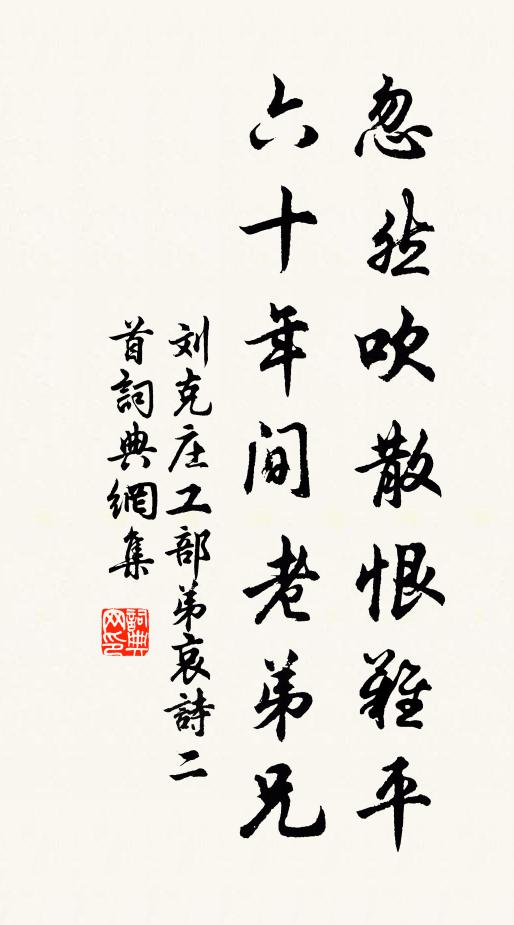 忽然吹散恨難平
六十年间老弟兄
刘克庄工部弟哀詩二
首詞典網集
詞典网印